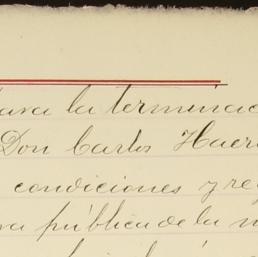 para la terminac
Don Carlos Haer
condiciones y reg
pública de la m